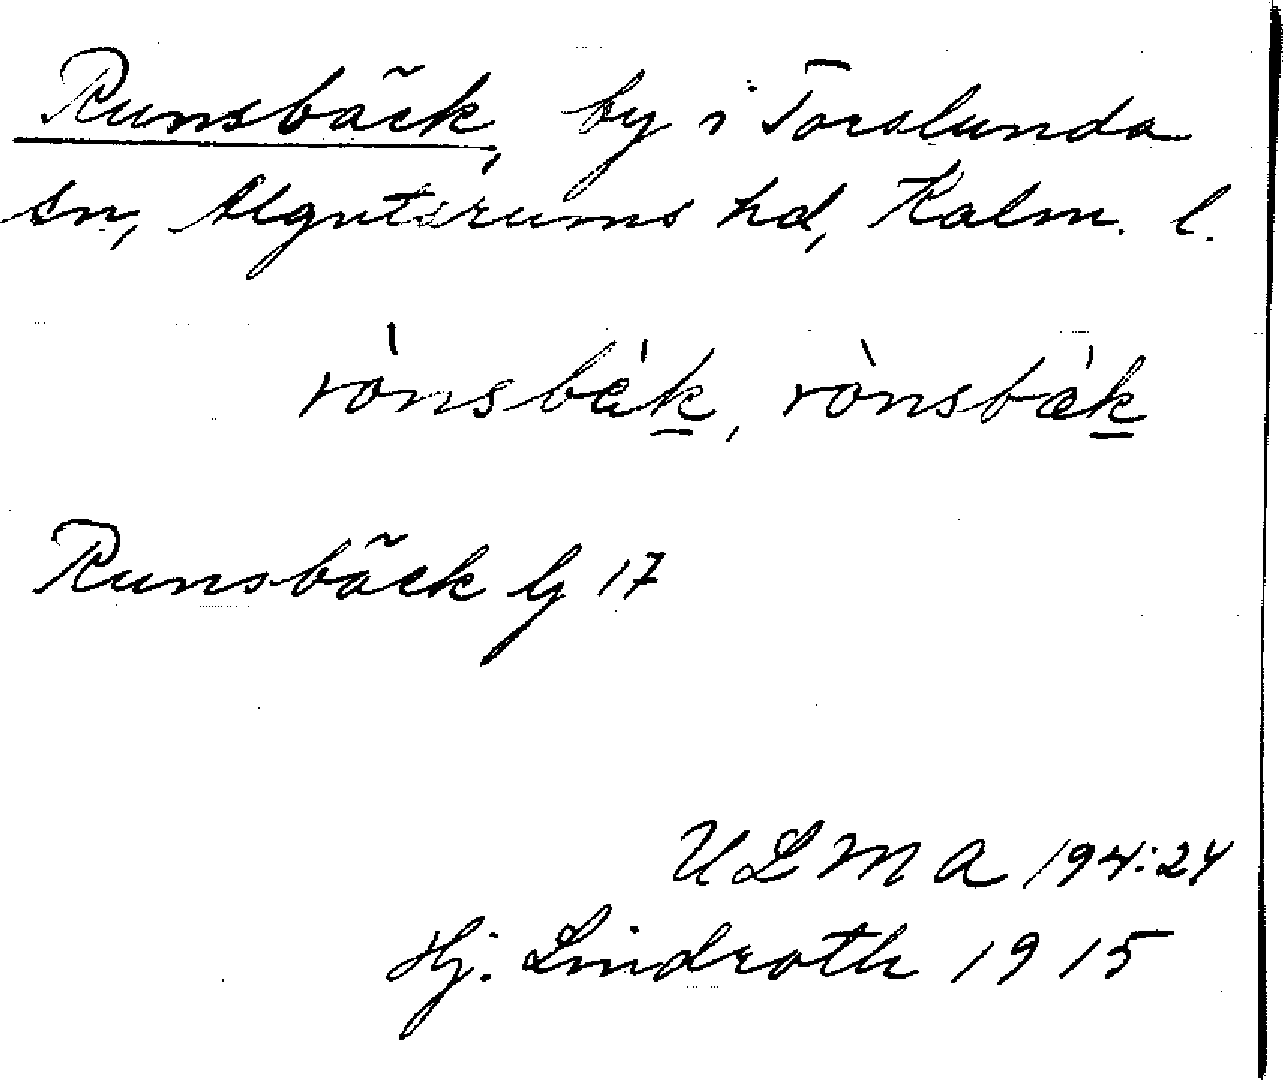 Runsbäck, by i Torslunda
sn, Algutsrums hd, Kalm. l.
rònsbák, rònsbǽk
Runsbäck Gj 17
ULMA 194:24
Hj. Lindroth 1915